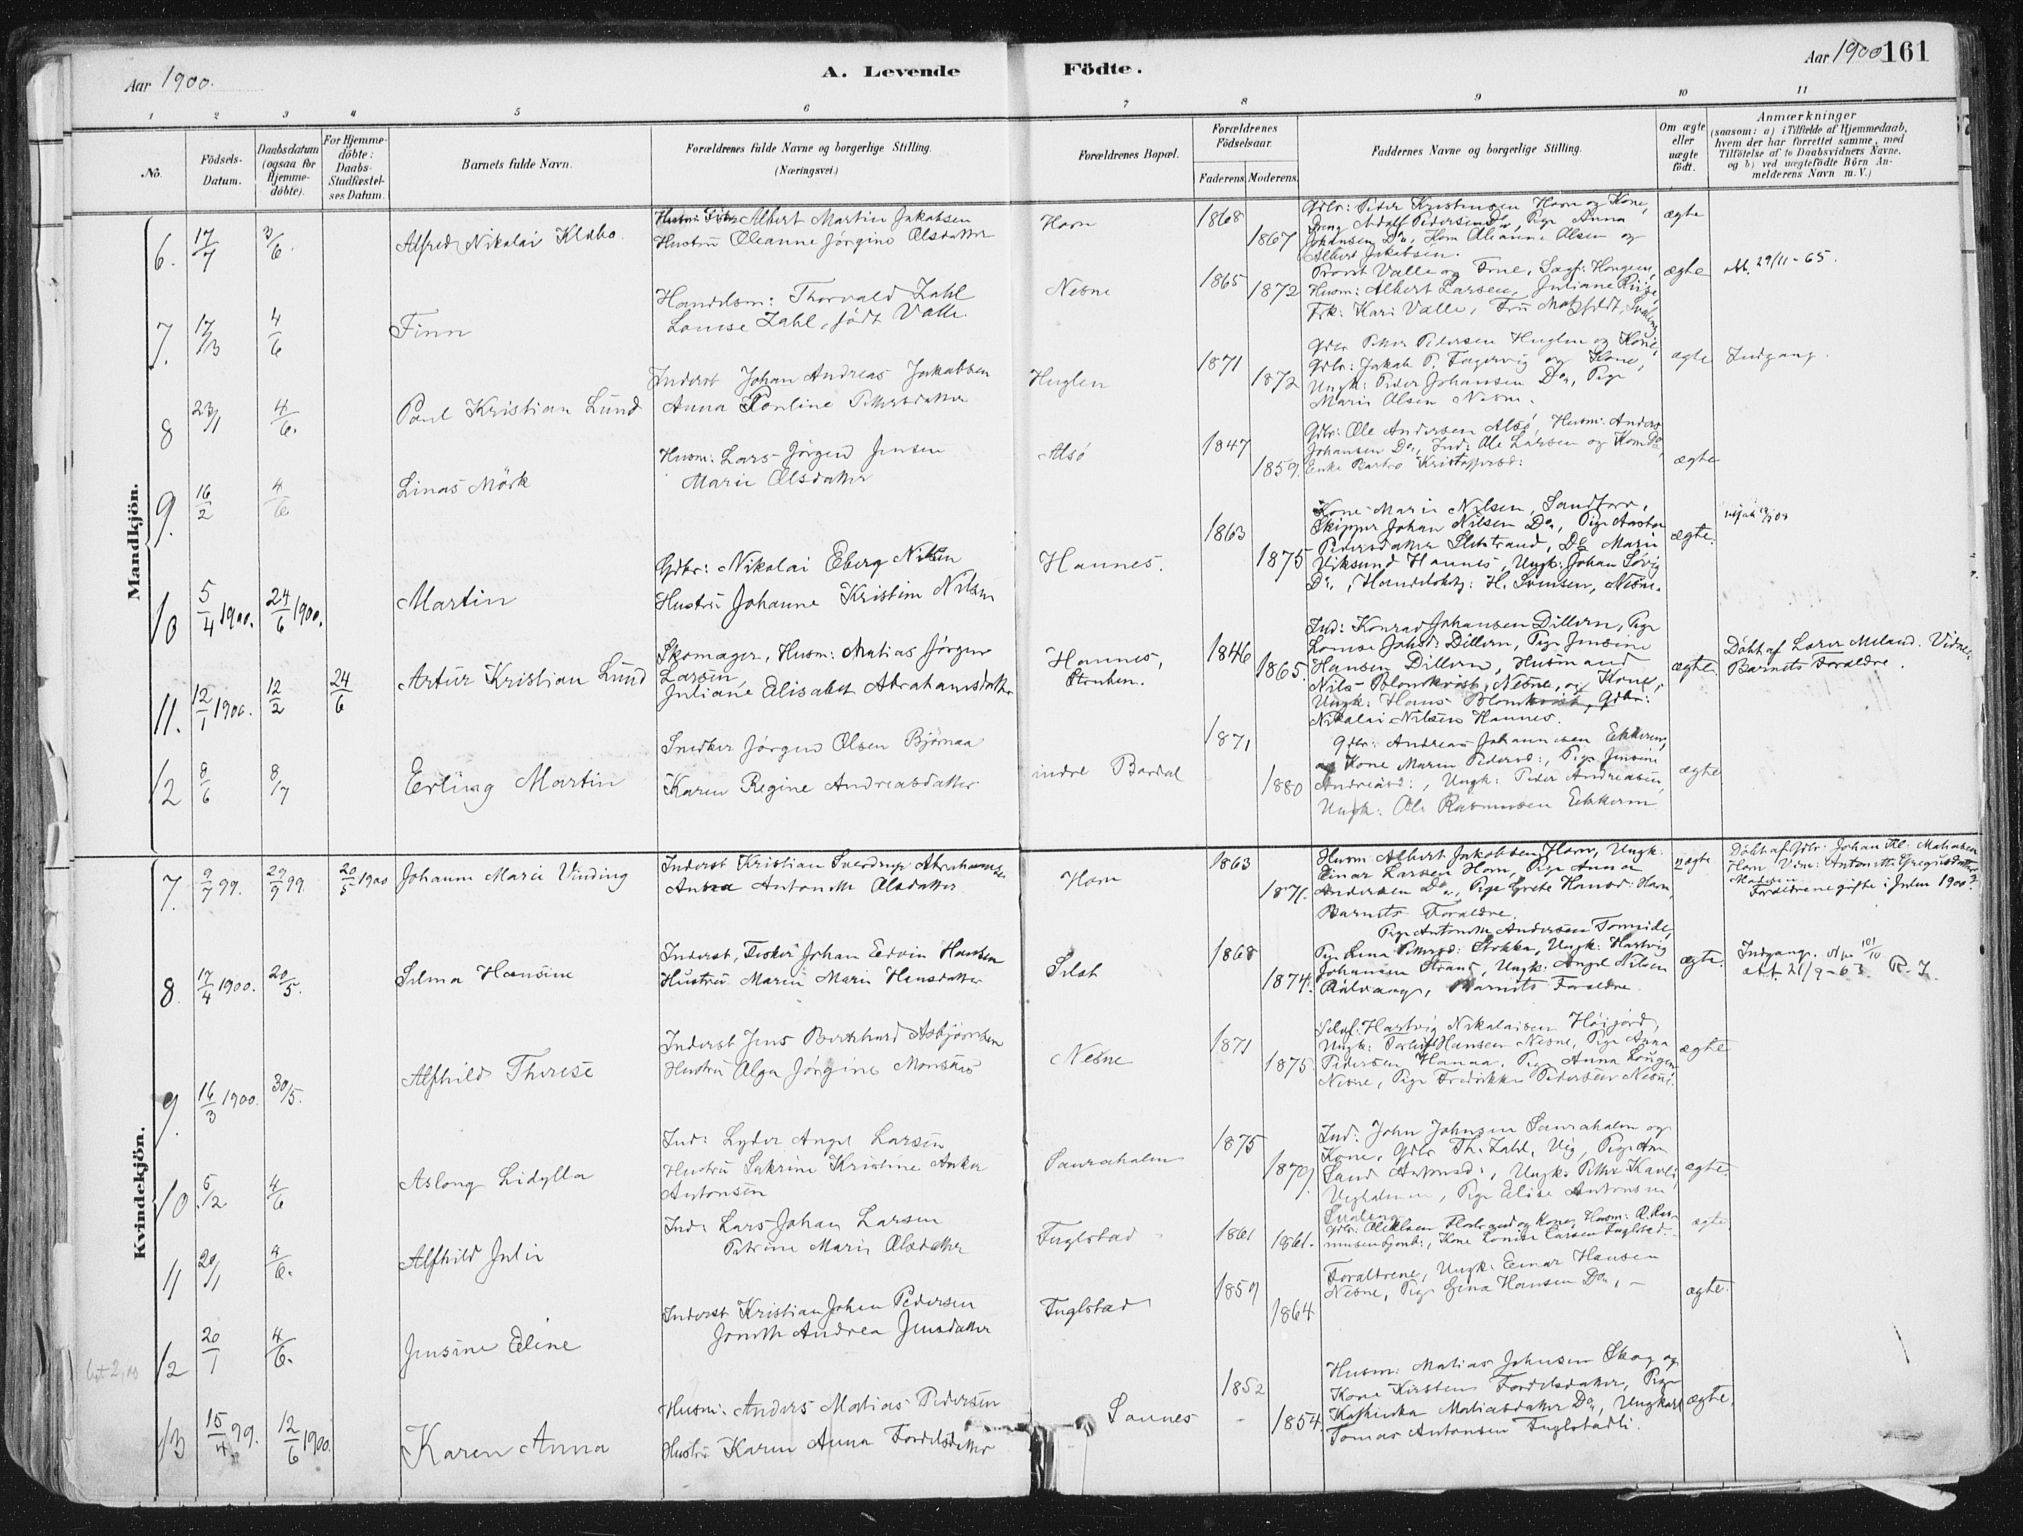 Aar 1900.
A. Levende Födte.
Aar 1900 161
1 2 3 4 5 6 7 8 9 10 11
No.
Födsels-Datum.
Daabsdatum (ogsaa for Hjemme-döbte).
For Hjemme-döbte: Daabs-Stadfæstel-ses Datum.
Barnets fulde Navn.
Forældrenes fulde Navne og borgerlige Stilling.
(Næringsvei.)
Forældrenes Bopæl.
Forældrenes Födselsaar.
Faderens. Moderens.
Faddernes Navne og borgerlige Stilling.
Om ægte eller uægte födt.
Anmærkninger
(saasom: a) i Tilfælde af Hjemmedaab, hvem der har forrettet samme, med Tilföielse af to Daabsvidners Navne, og b) ved uægtefödte Börn An-melderens Navn m. V.)
Mandkjön.
6. 17/7 3/6 Alfred Nikolai Klæbo
Albert Martin Jakobsen
Hustru Oleanne Jørgine Olsdatter
Horn 1868 1867
Gdbr: Peder Kristensen Horn og Kone,
Dreng Adolf Pedersen Do, Pige Anna
Johansen Do, Horn Oleanne Olsen og
Albert Jakobsen.
ægte
7. 17/3 4/6 Finn
Handelsm: Thorvald Zahl
Louise Zahl, født Valle
Nesne 1865 1872
Provst Valle og Frue,
Husm: Albert Larsen, Juliane
Frk: Kari Valle, Fru
ægte
29/11-65.
8 23/1 4/6. Paul Kristian Lund
Inderst Johan Andreas Jakobsen
Anna Pauline Pettersdatter
Huglen 1871 1872
Gdbr Petter Pedersen Huglen og Kone,
Gdbr: Jakob P. Fagervig og Kone,
Ungk: Peder Johansen Do, Pige
Marie Olsen Nesne.
ægte
Indgang.
9. 16/2 4/6 Linas Mörk
Husm: Lars Jörgen Jensen
Marie Olsdatter
Alsö 1847 1859.
Gdbr: Ole Andersen Alsö, Husm: Anders
Johansen Do, Ind: Ole Larsen og Kone Do
Enke
ægte
10 5/4 1900. 24/6 1900. Martin
Gdbr: Nikolai Eberg Nilsen
Hustru Johanne Kristine Nilsen
Hannes. 1863 1875
Kone Marie Nilsen, Sandhorn,
Skipper Johan Nilsen Do, Pige
Pedersdatter Do Marie
Viksund Hannes, Ungk: Johan Sövig
Do, H. Svensen, Nesne.
ægte.
11. 12/1 1900. 12/2 24/6 Artur Kristian Lund
Skomager, Husm: Matias Jörgen
Larsen
Juliane Elisabet Abrahamsdatter
Hannes, 1846 1865.
Ind: Konrad Johansen Dillern, Pige
Louise Dillern, Pige Jensine
Hansen Dillern, Husmand
Nils Blomkvist, Nesne, og Kone,
Ungk: Hans Blomkvist, Gdbr:
Nikolai Nilsen Hannes.
ægte.
Döbt af Lærer Meland. Vidne:
Barnets Forældre.
12 8/6 8/7 Erling Martin
Snedker Jörgen Olsen Björnaa
Karen Regine Andreasdatter
indre Bardal 1871 1880
Gdbr: Andreas Johannesen
og Kone Maren Pedersd:, Pige Jensine
Andreasd:, Ungk: Peder Andreasen,
Ungk: Ole Rasmussen
ægte
Kvindekjön.
7. 9/7 99. 29/9 99. 20/5 1900 Johanne Marie Vinding
Inderst Kristian Sverdrup Abrahamsen
Antonette Olsdatter.
Horn 1863 1871.
Husm: Albert Jakobsen Horn, Ungk:
Einar Larsen Horn, Pige Anna
Andersen Do, Pige Grete Hansd: Horn,
Barnets Forældre.
uægte
Döbt af Gdbr: Johan
Horn Vidne: Antonette
Forældrene gifte i Julen 1900.
8. 17/4 1900. 20/5. Selma Hansine
Inderst, Fisker Johan Edvin Hansen
Hustru Maren Marie Hansdatter
1868 1874.
Pige Antonette Andersen
Pige Lina Pettersd: Stokka, Ungk: Hartvig
Johansen Strand, Ungk: Angel Nilsen
Barnets Forældre.
ægte.
Indgang. No 101/10
21/9-63. R. J.
9. 16/3 1900. 30/5. Alfhild Therese
Inderst Jens Bernhard Asbjörnsen
Hustru Olga Jörgine Monsens
Nesne 1871 1875.
Hartvig Nikolaisen Höijord,
Ungk: Hansen Nesne, Pige Anna
Pedersen Hanaa, Pige Anna
Nesne, Pige Fredrikke Pedersen Nesne.
ægte
10 5/12 4/6 Aslong Lidylla
Ind: Lyder Angel Larsen
Hustru Sakrine Kristine Anker
Antonsen
Sauraholm 1875 1879.
Ind: John Johnsen Sauraholm og
Kone, Gdbr Th. Zahl, Vig, Pige
Antonsd:, Ungk: Petter
Pige Elise Antonsen
ægte.
11 20/1 4/6. Alfhild Julie
Ind: Lars Johan Larsen
Petrine Marie Olsdatter
Fuglstad 1861 1861.
og Kone, Husm:
Kone Louise Larsen Fuglstad.
ægte
12 20/1 4/6. Jensine Eline
Inderst Kristian Johan Pedersen
Andrea Jensdatter
Fuglstad 1859 1864
Forældrene, Ungk: Einar Hansen
Nesne, Pige Gina Hansen Do, –
ægte.
13 15/4 99. 12/6 1900. Karen Anna
Husm: Anders Matias Pedersen
Hustru Karen Anna Fordelsdatter
Sannes 1852 1854.
Husm: Matias Johnsen Skog og
Kone Kirsten Fordelsdatter, Pige
Kathinka Matiasdatter Do, Ungkarl
Tomas Antonsen Fuglstadli.
ægte.